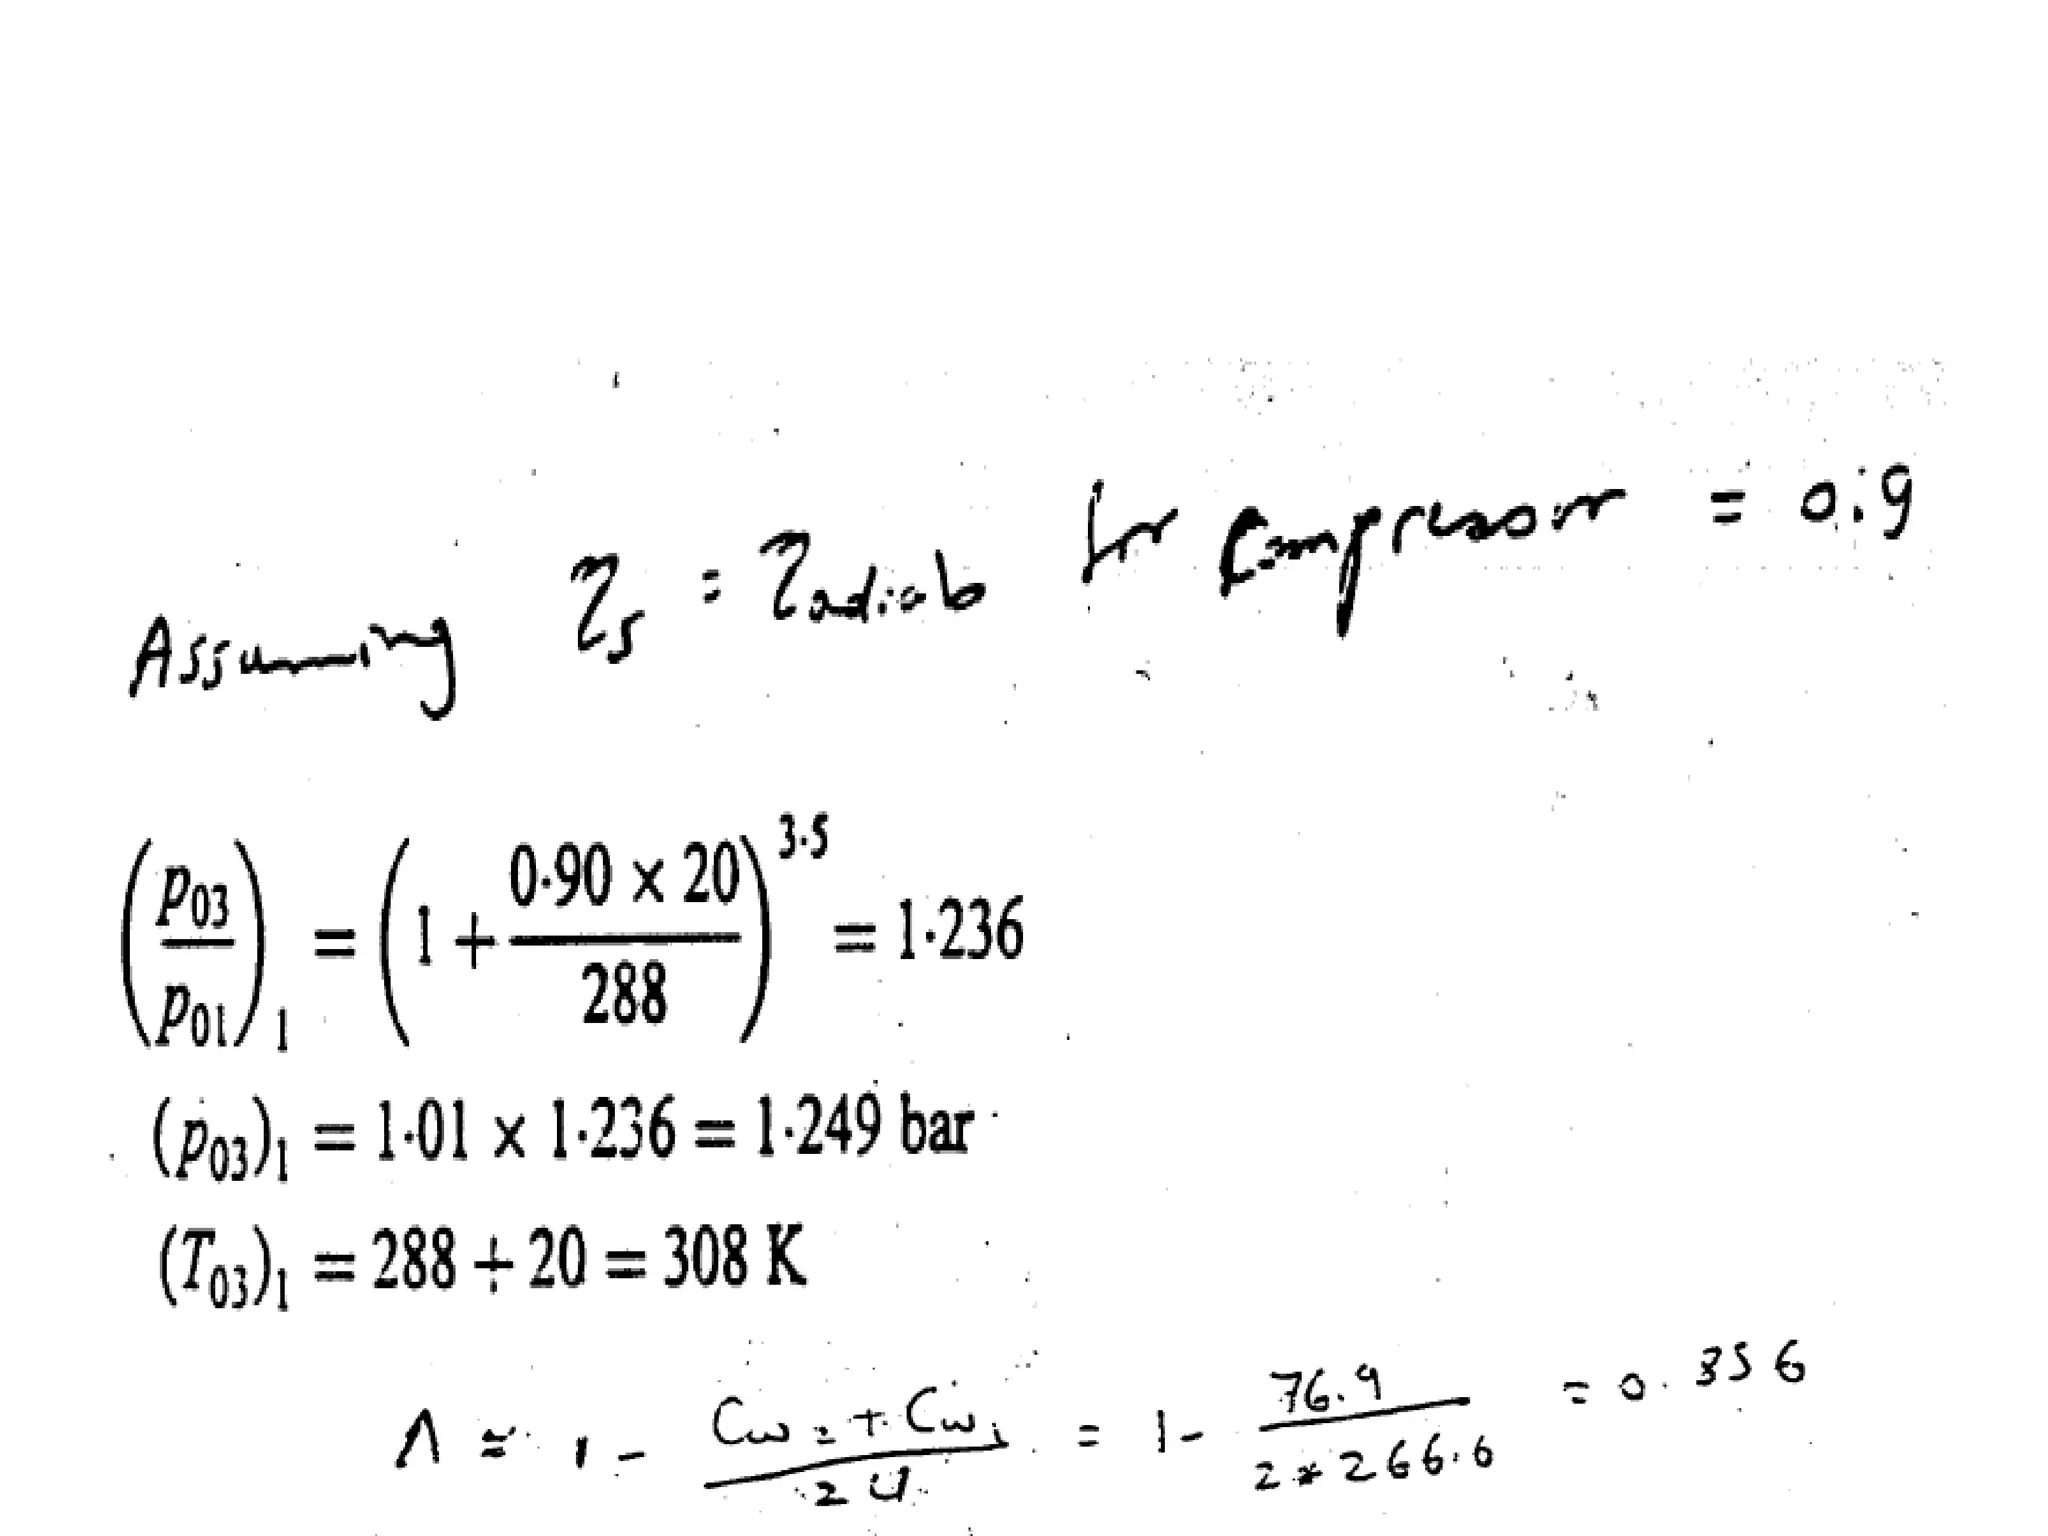 Assuming ηs = ηadiab for compressor = 0.9
(p03/p01)1 = (1 + 0·90 × 20/288)^3·5 = 1·236
(p03)1 = 1·01 × 1·236 = 1·249 bar
(T03)1 = 288 + 20 = 308 K
Λ ≈ 1 - Cw2 + Cw1/2U = 1 - 76.9/2*266.6 = 0.356